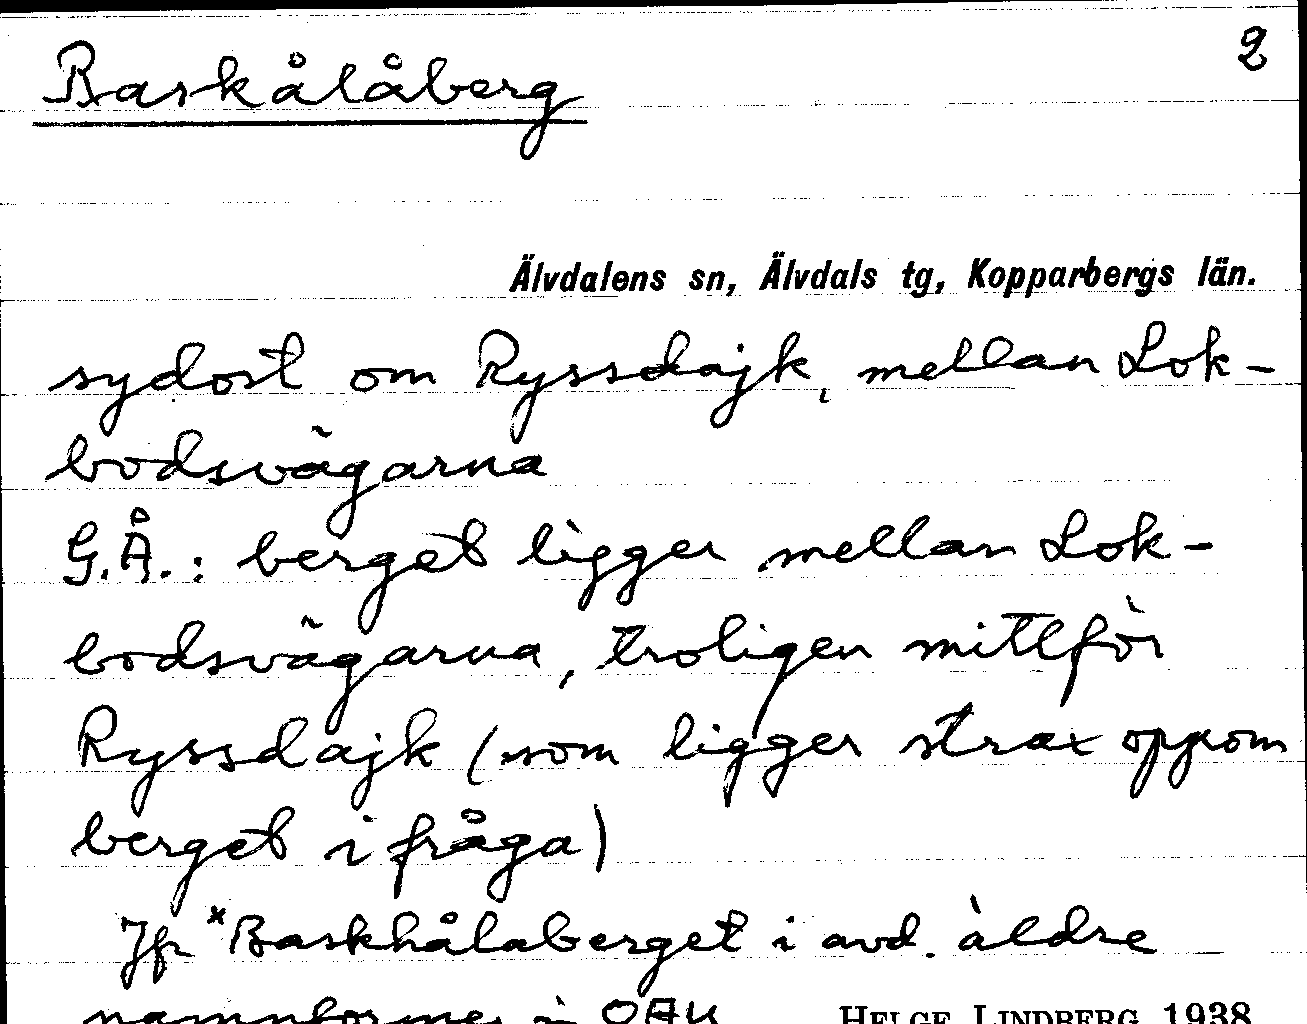 Baskålåberg 2
Älvdalens sn, Älvdals tg, Kopparbergs län.
sydost om Ryssdajk, mellan Lok-
bodsvägarna
G.Å.: berget ligger mellan Lok-
bodsvägarna, troligen mittför
Ryssdajk (som ligger strax oppom
berget i fråga)
Jfr *Baskhålaberget i avd. äldre
namnformer i OAU HELGE LINDBERG 1938